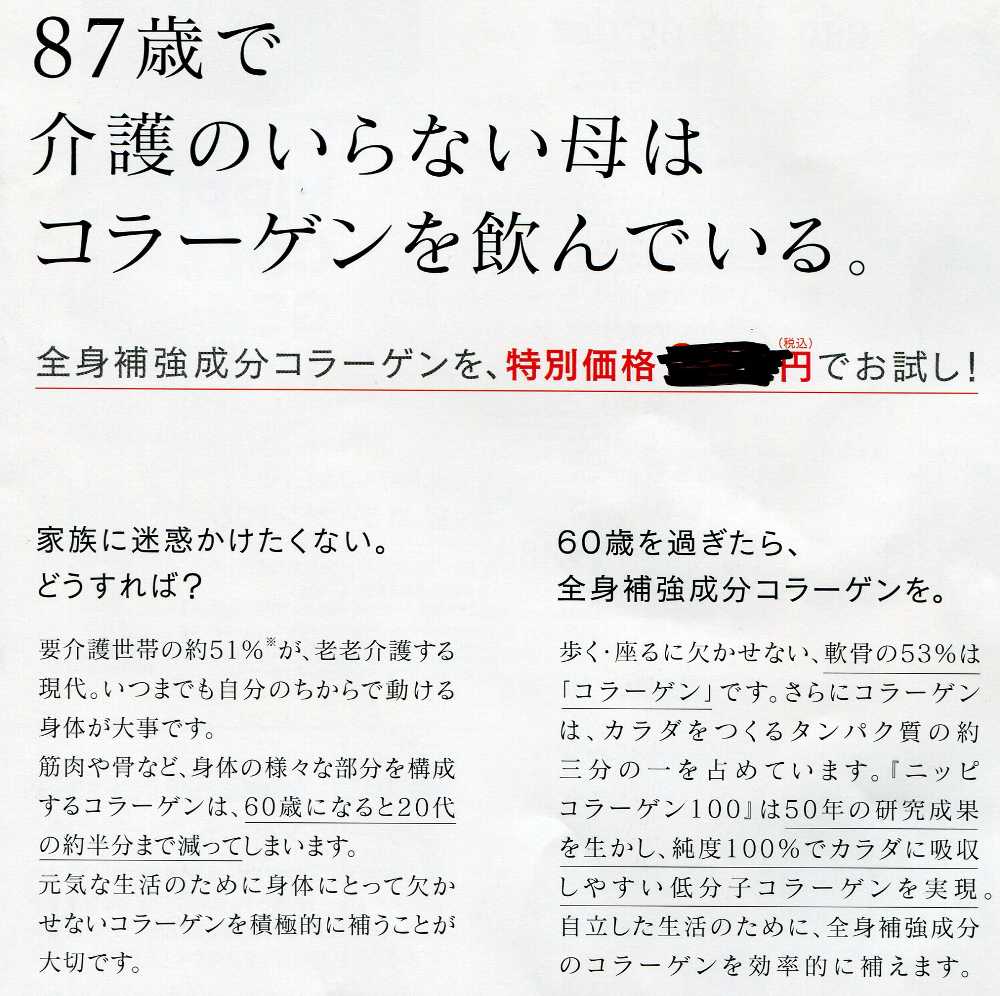 87歳で
介護のいらない母は
コラーゲンを飲んでいる。
全身補強成分コラーゲンを、特別価格 円(税込)でお試し!
家族に迷惑かけたくない。
どうすれば?
要介護世帯の約51%※が、老老介護する
現代。いつまでも自分のちからで動ける
身体が大事です。
筋肉や骨など、身体の様々な部分を構成
するコラーゲンは、60歳になると20代
の約半分まで減ってしまいます。
元気な生活のために身体にとって欠か
せないコラーゲンを積極的に補うことが
大切です。
60歳を過ぎたら、
全身補強成分コラーゲンを。
歩く・座るに欠かせない、軟骨の53%は
「コラーゲン」です。さらにコラーゲン
は、カラダをつくるタンパク質の約
三分の一を占めています。『ニッピ
コラーゲン100』は50年の研究成果
を生かし、純度100%でカラダに吸収
しやすい低分子コラーゲンを実現。
自立した生活のために、全身補強成分
のコラーゲンを効率的に補えます。